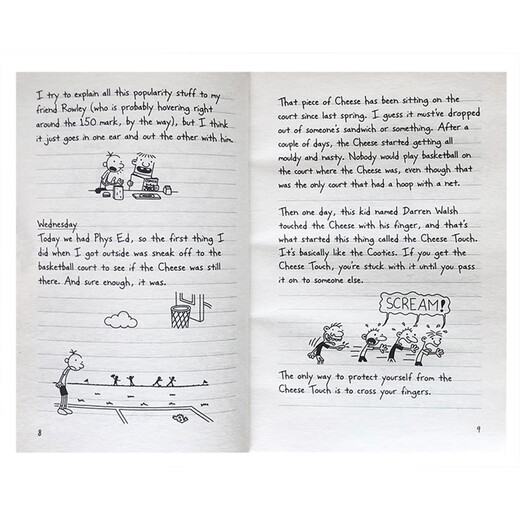 I try to explain all this popularity stuff to my
friend Rowley (who is probably hovering right
around the 150 mark, by the way), but I think
it just goes in one ear and out the other with him.
Wednesday
Today we had Phys Ed, so the first thing I
did when I got outside was sneak off to the
basketball court to see if the Cheese was still
there. And sure enough, it was.
8
That piece of Cheese has been sitting on the
court since last spring. I guess it must've dropped
out of someone's sandwich or something. After a
couple of days, the Cheese started getting all
mouldy and nasty. Nobody would play basketball on
the court where the Cheese was, even though that
was the only court that had a hoop with a net.
Then one day, this kid named Darren Walsh
touched the Cheese with his finger, and that's
what started this thing called the Cheese Touch.
It's basically like the Cooties. If you get the
Cheese Touch, you're stuck with it until you pass
it on to someone else.
SCREAM!
The only way to protect yourself from the
Cheese Touch is to cross your fingers.
9